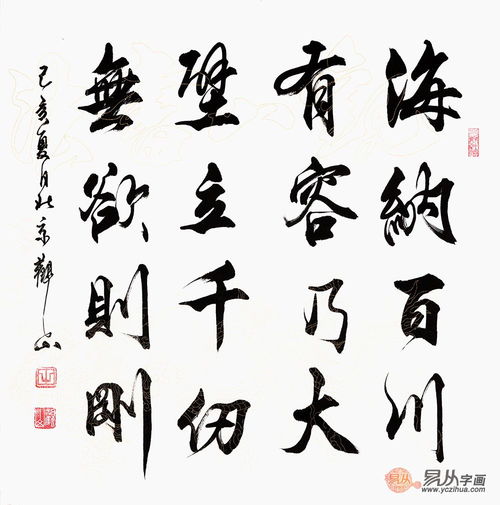 海納百川
有容乃大
壁立千仞
無欲則剛
己亥夏月北京觀山
易从字画
www.yczihua.com